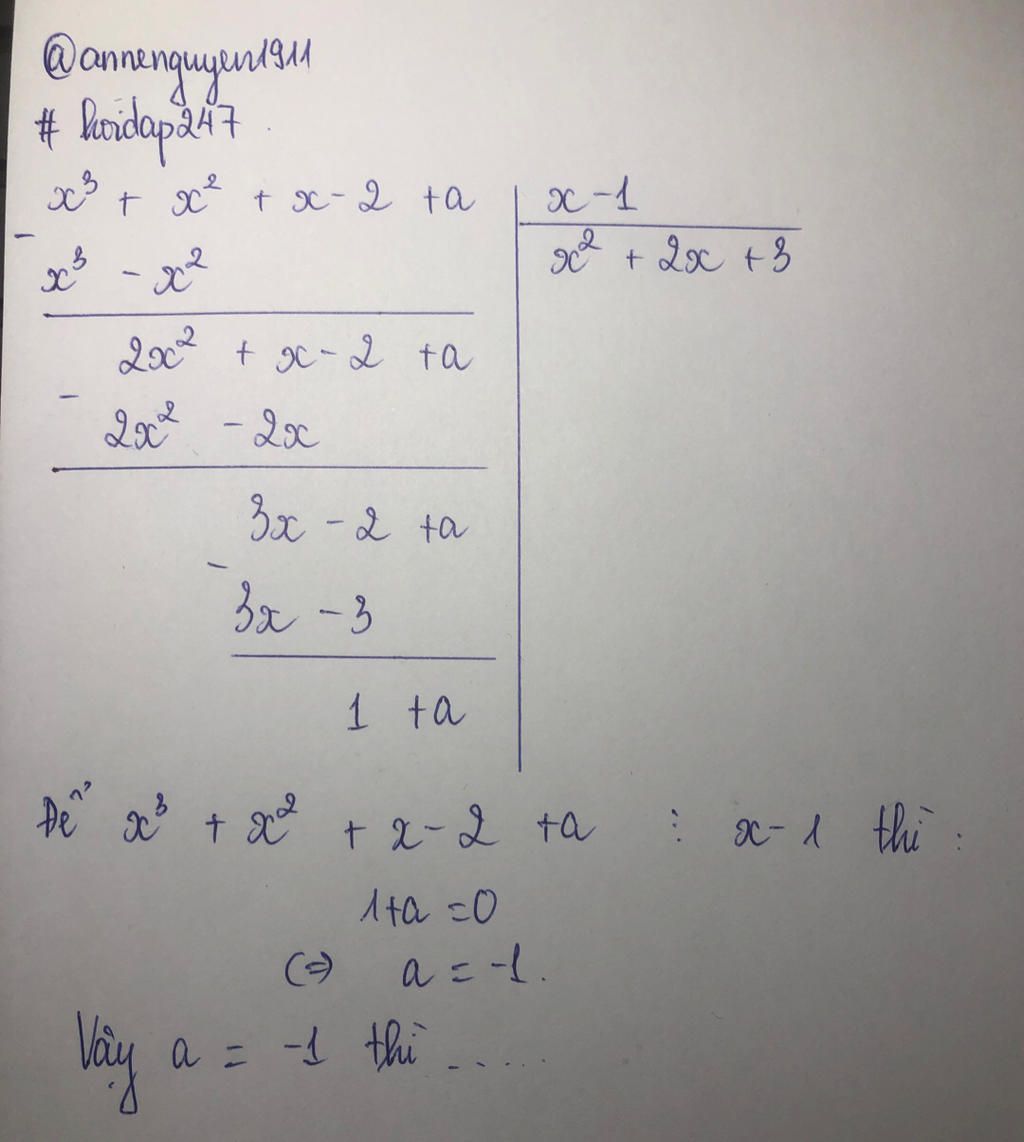 @annenguyen1911
# hoidap247
x³ + x² + x - 2 + a | x - 1
- x³ - x² | x² + 2x + 3
2x² + x - 2 + a
- 2x² - 2x
3x - 2 + a
- 3x - 3
1 + a
Để x³ + x² + x - 2 + a ⋮ x - 1 thì :
1+a = 0
(=) a = -1.
Vậy a = -1 thì .....